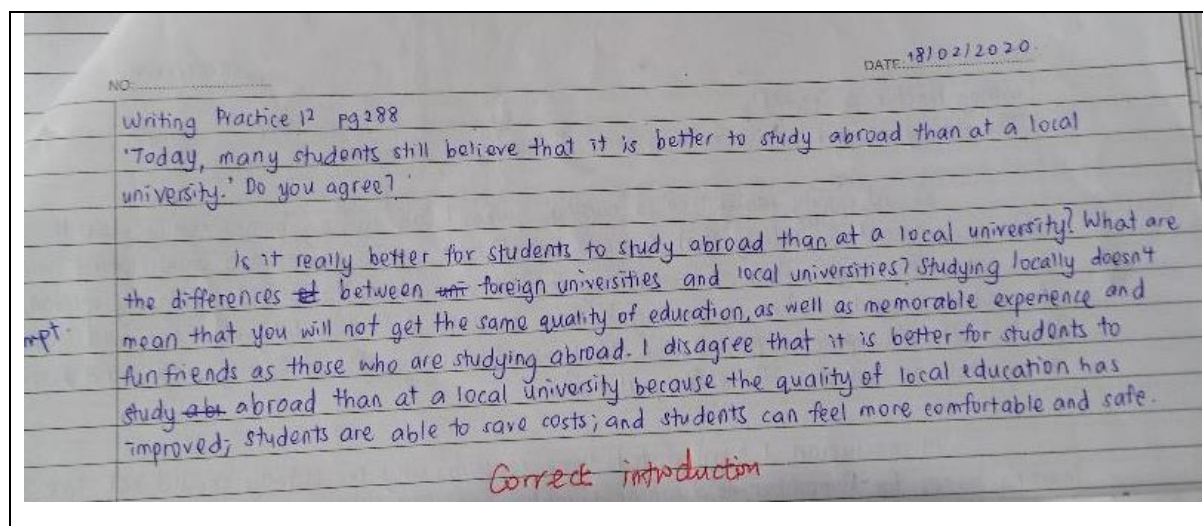 DATE: 18/02/2020.
NO:
Writing Practice 12 pg 288
'Today, many students still believe that it is better to study abroad than at a local
university.' Do you agree?
Is it really better for students to study abroad than at a local university? What are
the differences between foreign universities and local universities? Studying locally doesn't
mean that you will not get the same quality of education, as well as memorable experience and
fun friends as those who are studying abroad. I disagree that it is better for students to
study abroad than at a local university because the quality of local education has
improved; students are able to save costs; and students can feel more comfortable and safe.
Correct introduction